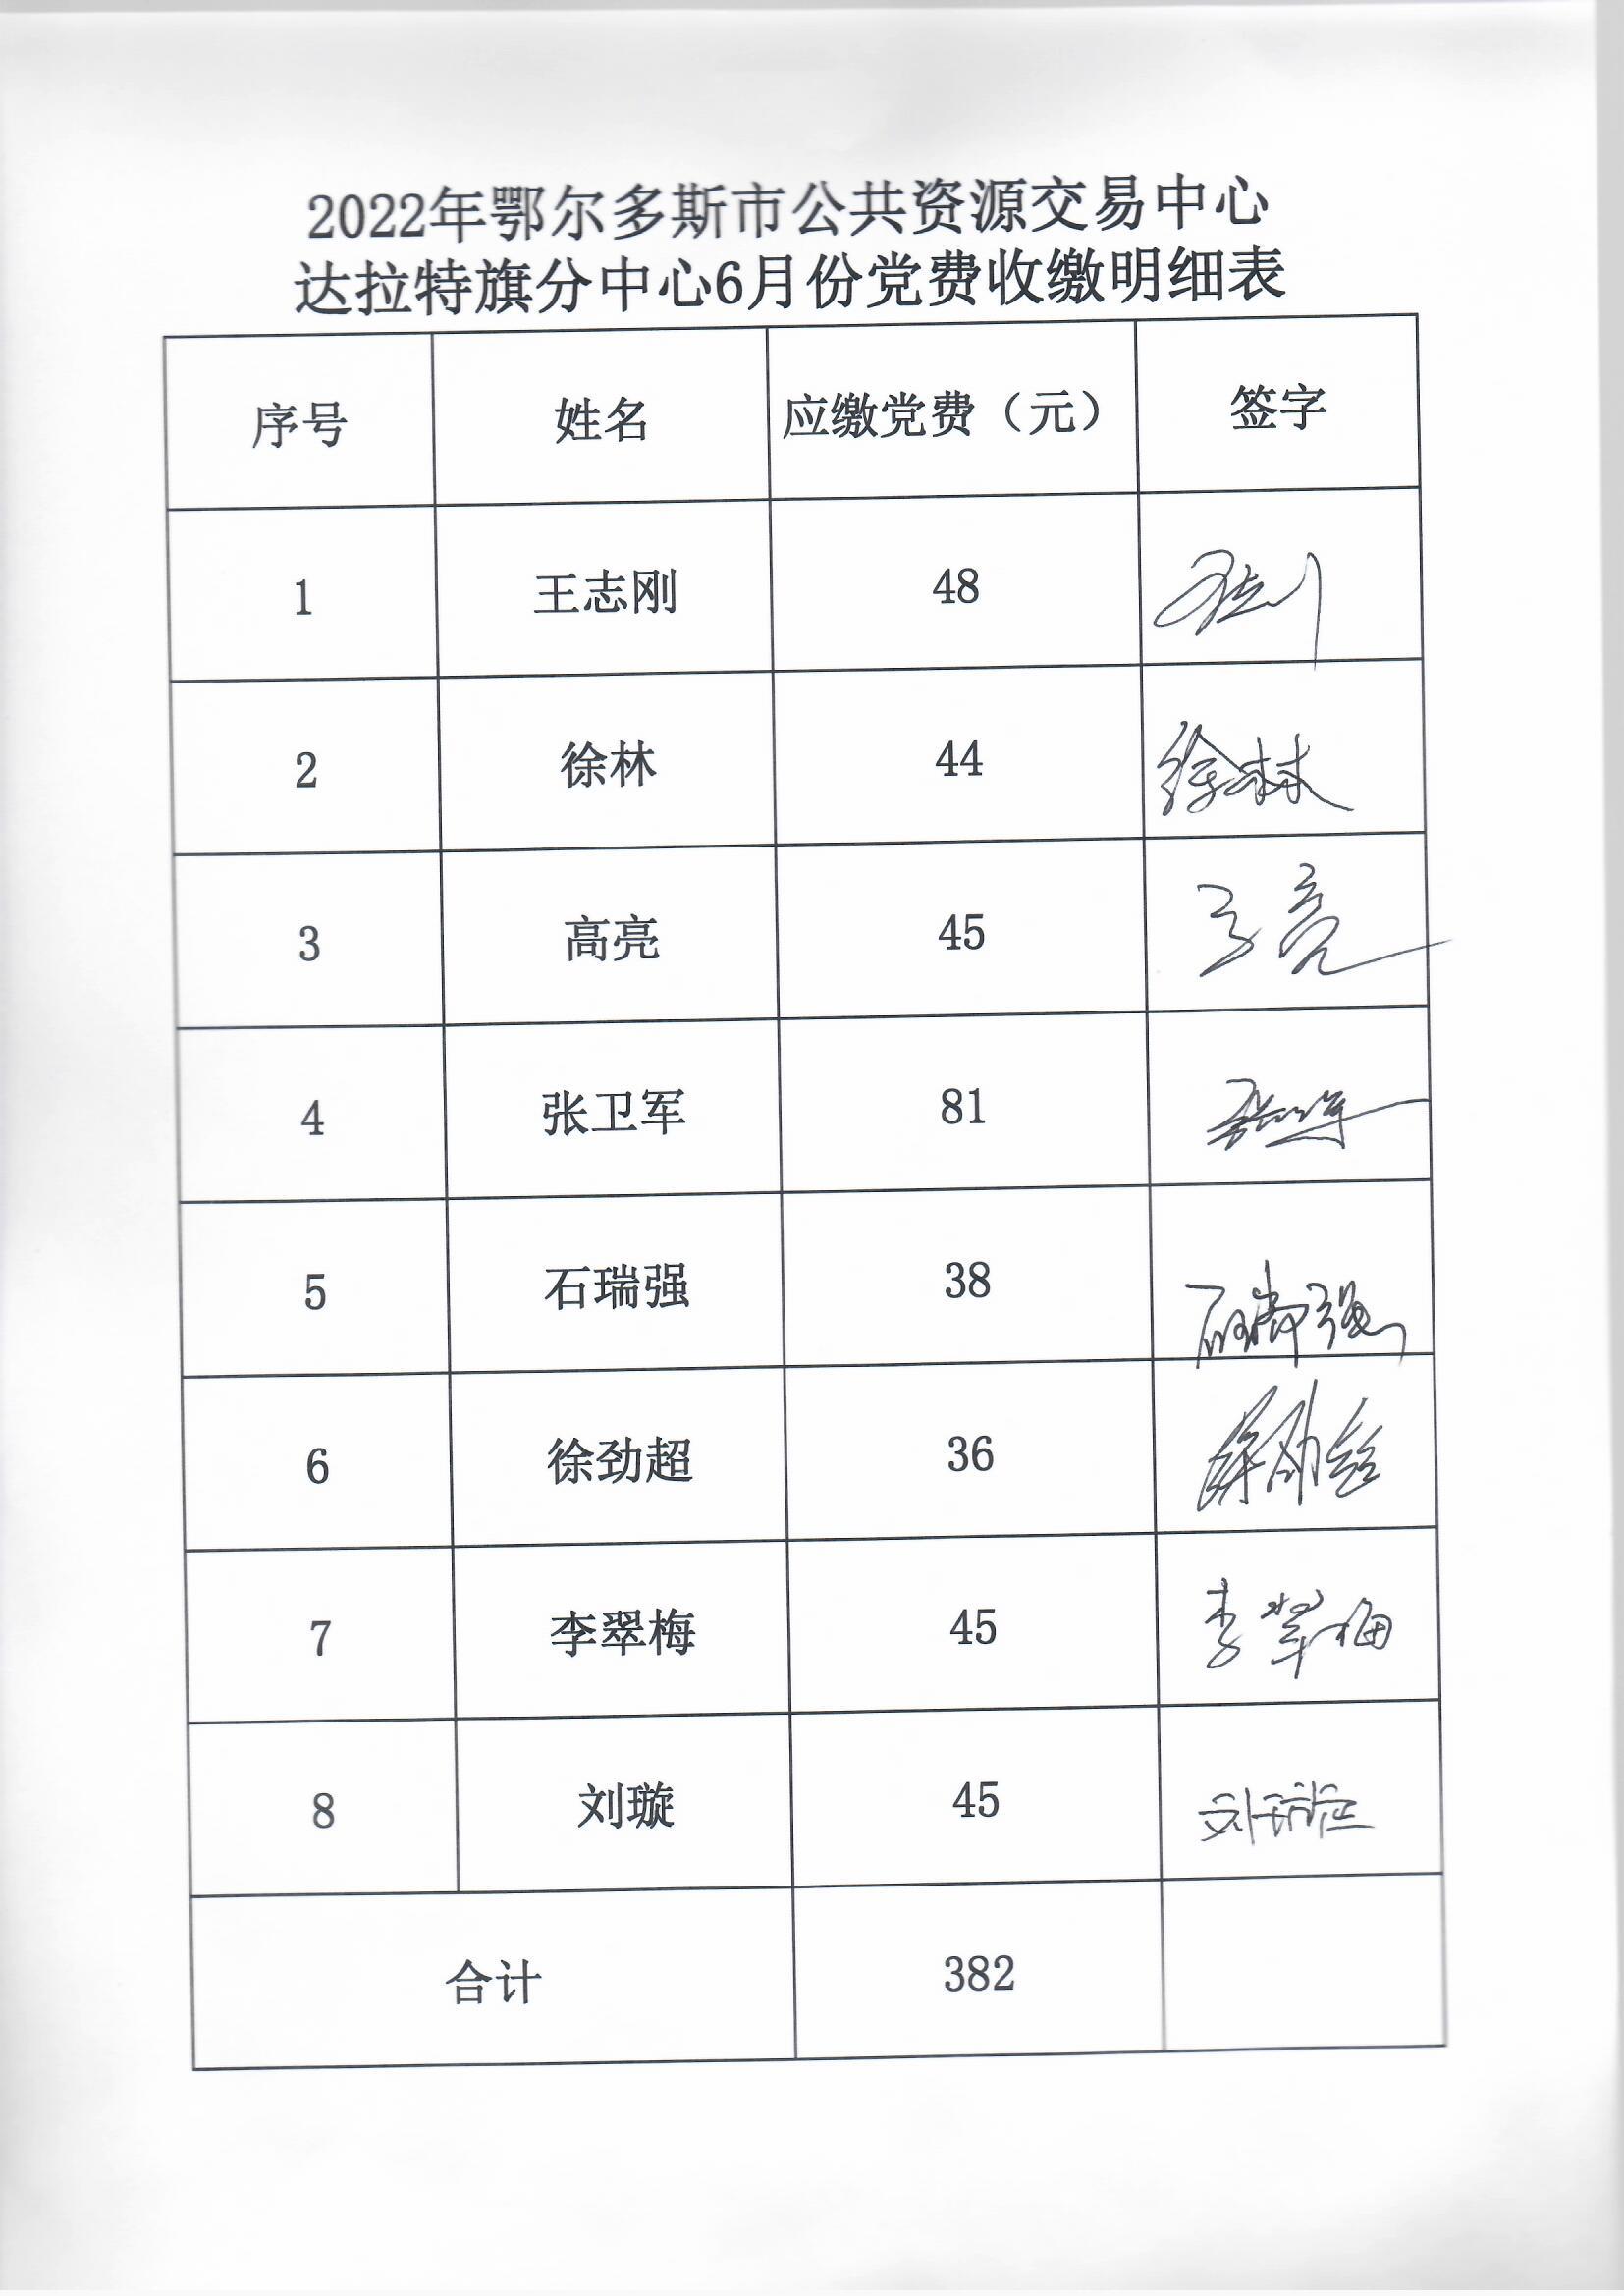 2022年鄂尔多斯市公共资源交易中心
达拉特旗分中心6月份党费收缴明细表
序号 姓名 应缴党费（元） 签字
1 王志刚 48
2 徐林 44 徐林
3 高亮 45 高亮
4 张卫军 81 张卫军
5 石瑞强 38 石瑞强
6 徐劲超 36 徐劲超
7 李翠梅 45 李翠梅
8 刘璇 45 刘璇
合计 382